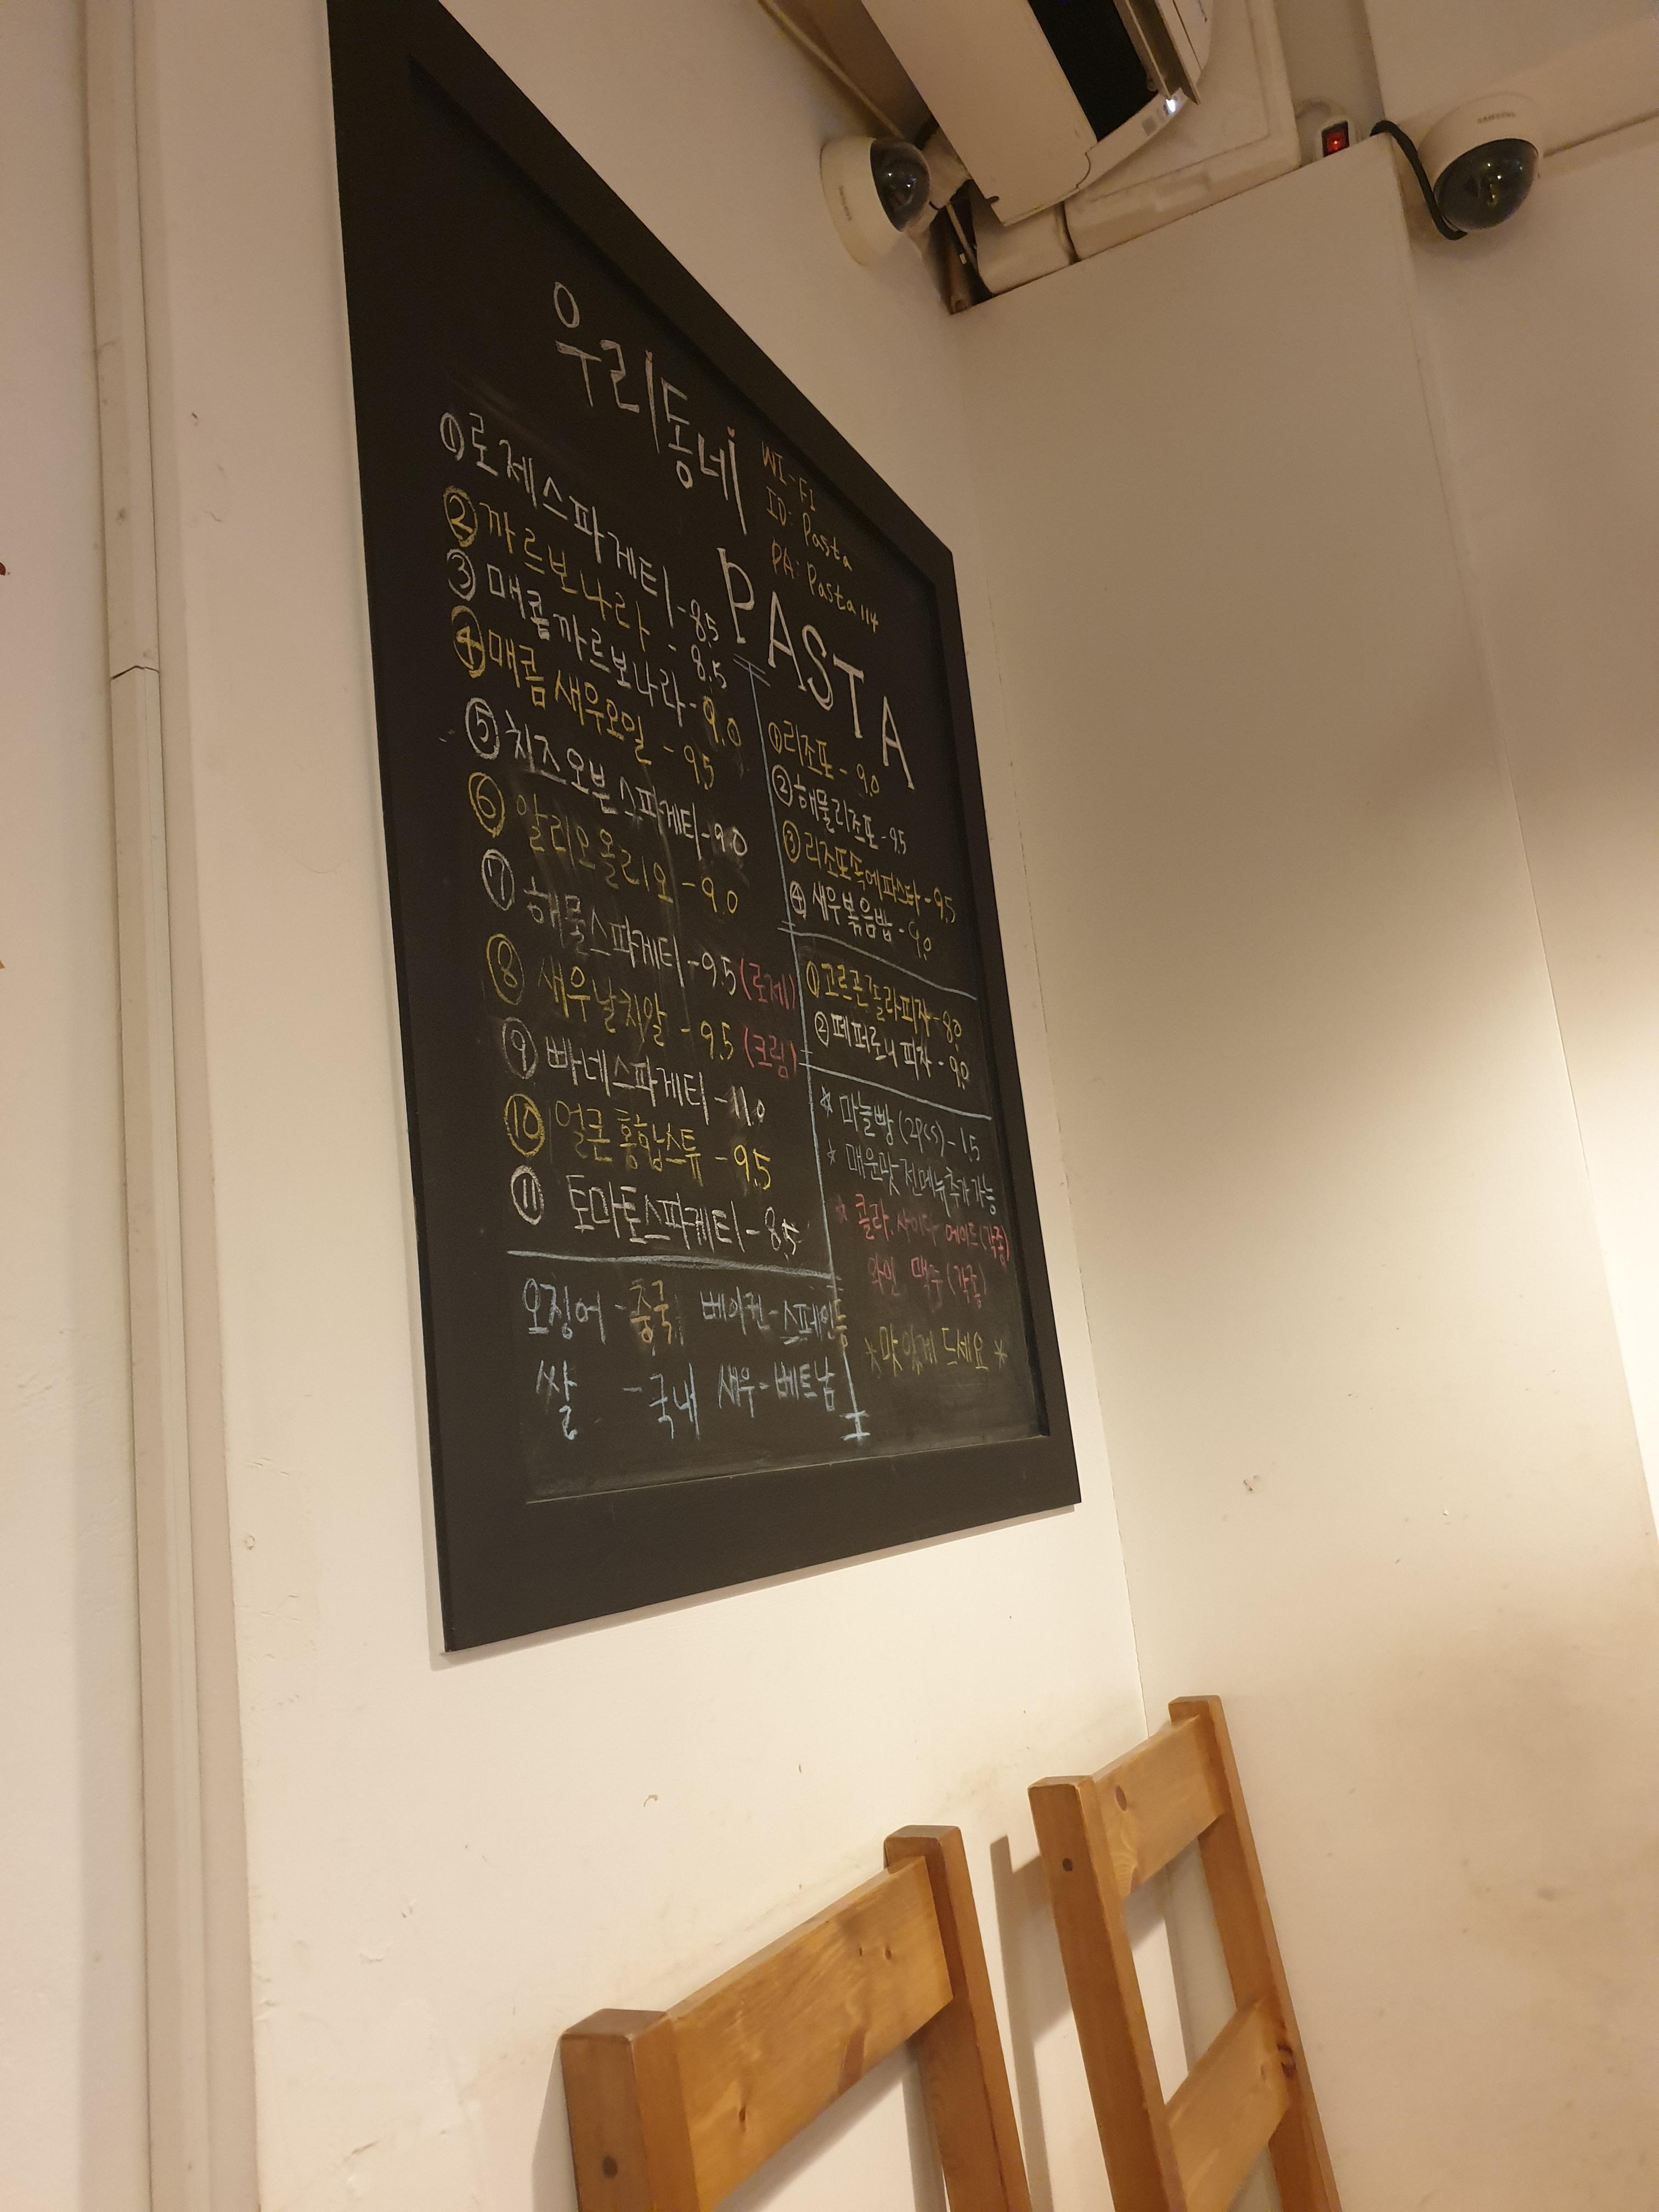 우리동네
PASTA
WI-FI
ID: Pasta
PA: Pasta114
① 로제스파게티 - 8.5
② 까르보나라 - 8.5
③ 매콤까르보나라 - 9.0
④ 매콤새우오일 - 9.5
⑤ 치즈오븐스파게티 - 9.0
⑥ 알리오올리오 - 9.0
⑦ 해물스파게티 - 9.5 (로제)
⑧ 새우날치알 - 9.5 (크림)
⑨ 빠네스파게티 - 11.0
⑩ 얼큰홍합스튜 - 9.5
⑪ 토마토스파게티 - 8.5
오징어 - 중국 베이컨 - 스페인등
쌀 - 국내 새우 - 베트남
① 리조또 - 9.0
② 해물리조또 - 9.5
③ 리조또속에파스타 - 9.5
④ 새우볶음밥 - 9.0
① 고르곤졸라피자 - 8.0
② 페퍼로니피자 - 9.0
* 마늘빵 (2pcs) - 1.5
* 매운맛 전메뉴추가가능
* 콜라, 사이다 에이드(각종)
와인 맥주 (각종)
*맛있게 드세요*
SAMSUNG
SAMSUNG